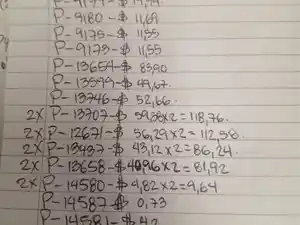 P-9180-$ 11,69
P-9175-$ 11,55
P-9173-$ 11,55
P-13654-$ 85,90
P-13599-$ 49,67.
P-13746-$ 52,66.
2x P-13707-$ 59,38x2=118,76.
2x P-12671-$ 56,29x2=112,58.
2x P-13437-$ 43,12x2=86,24.
2x P-13658-$ 40,96x2=81,92
2x P-14580-$ 4,82x2=9,64
P-14587-$ 0,73
P-14581-$